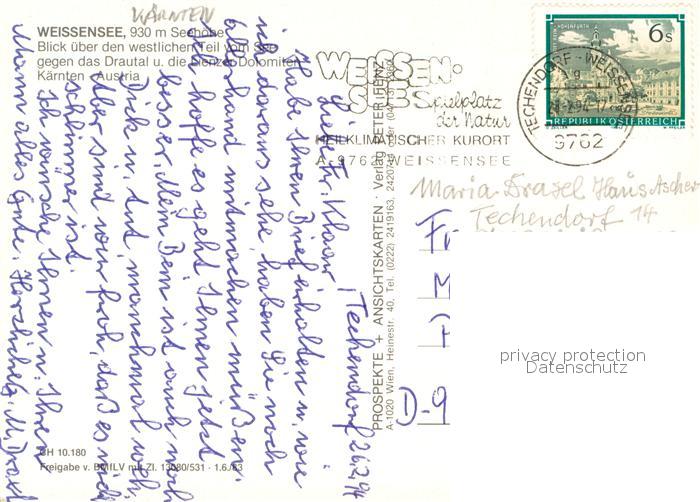 KÄRNTEN
WEISSENSEE, 930 m Seehöhe
Blick über den westlichen Teil vom See
gegen das Drautal u. die Lienzer Dolomiten
Kärnten Austria
WEISSEN-
SEE Spielplatz
der Natur
HEILKLIMATISCHER KURORT
A-9762 WEISSENSEE
TECHENDORF - WEISSENSEE
9762
6 S
REPUBLIK ÖSTERREICH
Maria Drasel Haus Ascher
Techendorf 14
Techendorf 26.2.94
Liebe Fr. Klaar!
Habe Ihren Brief erhalten u. wie
ich daraus sehe, haben Sie noch
allerhand mitmachen müßen.
Ich hoffe es geht Ihnen jetzt
besser. Mein Bein ist auch noch
dick u. tut manchmal weh
Aber sind wir froh, daß es nicht
schlimmer ist.
Ich wünsche Ihnen u. Ihrem
Mann alles Gute. Herzlichst, M. Drasl
PROSPEKTE + ANSICHTSKARTEN · Verlag PETER IRENZ
A-1020 Wien, Heinestr. 40, Tel. (0222) 2419163,
Fr
M
D-9
privacy protection
Datenschutz
CH 10.180
Freigabe v. BMfLV mit Zl. 13080/531 - 1.6./83